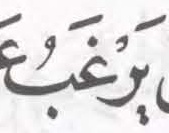 يَرْغَبُ